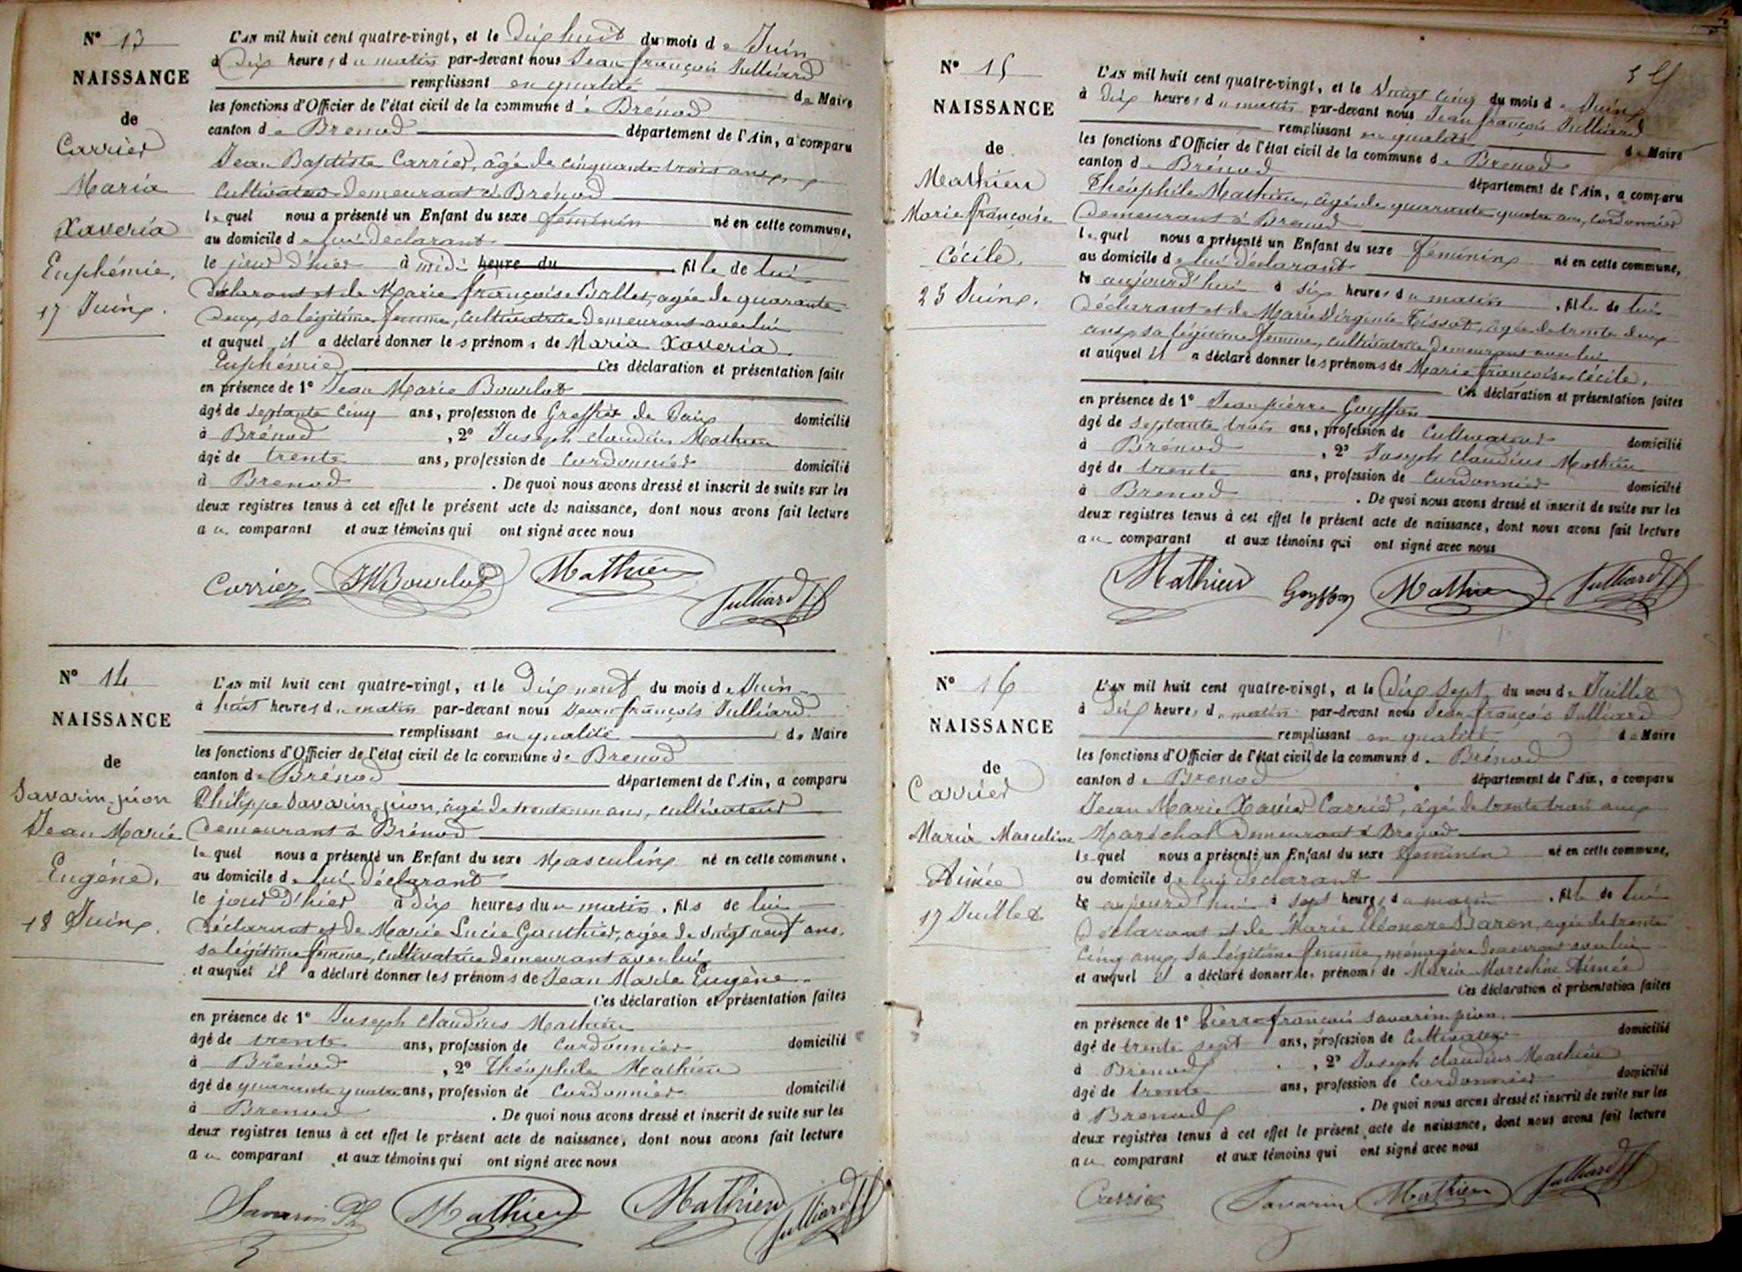 N° 13
NAISSANCE
de
Carrier
Maria
Xaveria
Euphémie.
17 Juin.
L'AN mil huit cent quatre-vingt, et le Dix huit du mois de Juin
à Dix heures du matin par-devant nous Jean françois Julliard
remplissant en qualité de Maire
les fonctions d'Officier de l'état civil de la commune de Brénod
canton de Brenod département de l'Ain, a comparu
Jean Baptiste Carrier, âgé de cinquante trois ans,
cultivateur demeurant à Brénod
lequel nous a présenté un Enfant du sexe féminin né en cette commune,
au domicile de lui déclarant
le jour d'hier à midi heure du fille de lui
déclarant et de Marie françoise Ballet, agée de quarante
deux, sa légitime femme, cultivatrice demeurant avec lui
et auquel il a déclaré donner les prénoms de Maria Xaveria
Euphémie Ces déclaration et présentation faites
en présence de 1° Jean Marie Bourlot
âgé de septante cinq ans, profession de Greffier de Paix domicilié
à Brénod , 2° Joseph claudius Mathieu
âgé de trente ans, profession de Cordonnier domicilié
à Brenod . De quoi nous avons dressé et inscrit de suite sur les
deux registres tenus à cet effet le présent acte de naissance, dont nous avons fait lecture
au comparant et aux témoins qui ont signé avec nous
Carrier JMBourlot Mathieu Julliard Jf
N° 14
NAISSANCE
de
Savarin-pion
Jean Marie
Eugène.
18 Juin.
L'AN mil huit cent quatre-vingt, et le Dix neuf du mois de Juin
à huit heures du matin par-devant nous Jean françois Julliard
remplissant en qualité de Maire
les fonctions d'Officier de l'état civil de la commune de Brenod
canton de Brénod département de l'Ain, a comparu
Philippe Savarin-pion, âgé de trente un ans, cultivateur
demeurant à Brénod
lequel nous a présenté un Enfant du sexe Masculin né en cette commune.
au domicile de lui déclarant
le jour d'hier à dix heures du matin . fils de lui
déclarant et de Marie Lucie Gauthier, agée de vingt neuf ans,
sa légitime femme, cultivatrice demeurant avec lui
et auquel il a déclaré donner les prénoms de Jean Marie Eugène
Ces déclaration et présentation faites
en présence de 1° Joseph claudius Mathieu
âgé de trente ans, profession de Cordonnier domicilié
à Brénod , 2° Théophile Mathieu
âgé de quarante quatre ans, profession de Cordonnier domicilié
à Brenod . De quoi nous avons dressé et inscrit de suite sur les
deux registres tenus à cet effet le présent acte de naissance, dont nous avons fait lecture
au comparant et aux témoins qui ont signé avec nous
Savarin Ph Mathieu Mathieu Julliard Jf
N° 15
NAISSANCE
de
Mathieu
Marie françoise
Cécile.
25 Juin.
L'AN mil huit cent quatre-vingt, et le Vingt cinq du mois de Juin
à Dix heures du matin par-devant nous Jean françois Julliard
remplissant en qualité de Maire
les fonctions d'Officier de l'état civil de la commune de Brenod
canton de Brénod département de l'Ain, a comparu
Théophile Mathieu, âgé de quarante quatre ans, cordonnier
demeurant à Brenod
lequel nous a présenté un Enfant du sexe féminin né en cette commune,
au domicile de lui déclarant
le aujourd'hui à six heures du matin . fille de lui
déclarant et de Marie Virginie Tissot, âgée de trente deux
ans, sa légitime femme, cultivatrice demeurant avec lui
et auquel il a déclaré donner les prénoms de Marie françoise Cécile.
Ces déclaration et présentation faites
en présence de 1° Jean pierre Goyffon
âgé de septante trois ans, profession de Cultivateur domicilié
à Brénod , 2° Joseph Claudius Mathieu
âgé de trente ans, profession de Cordonnier domicilié
à Brenod . De quoi nous avons dressé et inscrit de suite sur les
deux registres tenus à cet effet le présent acte de naissance, dont nous avons fait lecture
au comparant et aux témoins qui ont signé avec nous
Mathieu Goyffon Mathieu Julliard Jf
N° 16
NAISSANCE
de
Carrier
Maria Masceline
Aimée
17 Juillet
L'AN mil huit cent quatre-vingt, et le Dix sept du mois de Juillet
à Dix heures du matin par-devant nous Jean françois Julliard
remplissant en qualité de Maire
les fonctions d'Officier de l'état civil de la commune de Brénod
canton de Brenod département de l'Ain, a comparu
Jean Marie Xavier Carrier, âgé de trente trois ans
Maréchal demeurant à Brenod
lequel nous a présenté un Enfant du sexe féminin né en cette commune,
au domicile de lui déclarant
le aujourd'hui à sept heures du matin . fille de lui
déclarant et de Marie Eléonore Baron, agée de trente
cinq ans, sa légitime femme, ménagère demeurant avec lui
et auquel il a déclaré donner les prénoms de Maria Marceline Aimée
Ces déclaration et présentation faites
en présence de 1° Pierre françois Savarin pion
âgé de trente sept ans, profession de Cultivateur domicilié
à Brenod , 2° Joseph claudius Mathieu
âgé de trente ans, profession de Cordonnier domicilié
à Brenod . De quoi nous avons dressé et inscrit de suite sur les
deux registres tenus à cet effet le présent acte de naissance, dont nous avons fait lecture
au comparant et aux témoins qui ont signé avec nous
Carrier Savarin Mathieu Julliard Jf